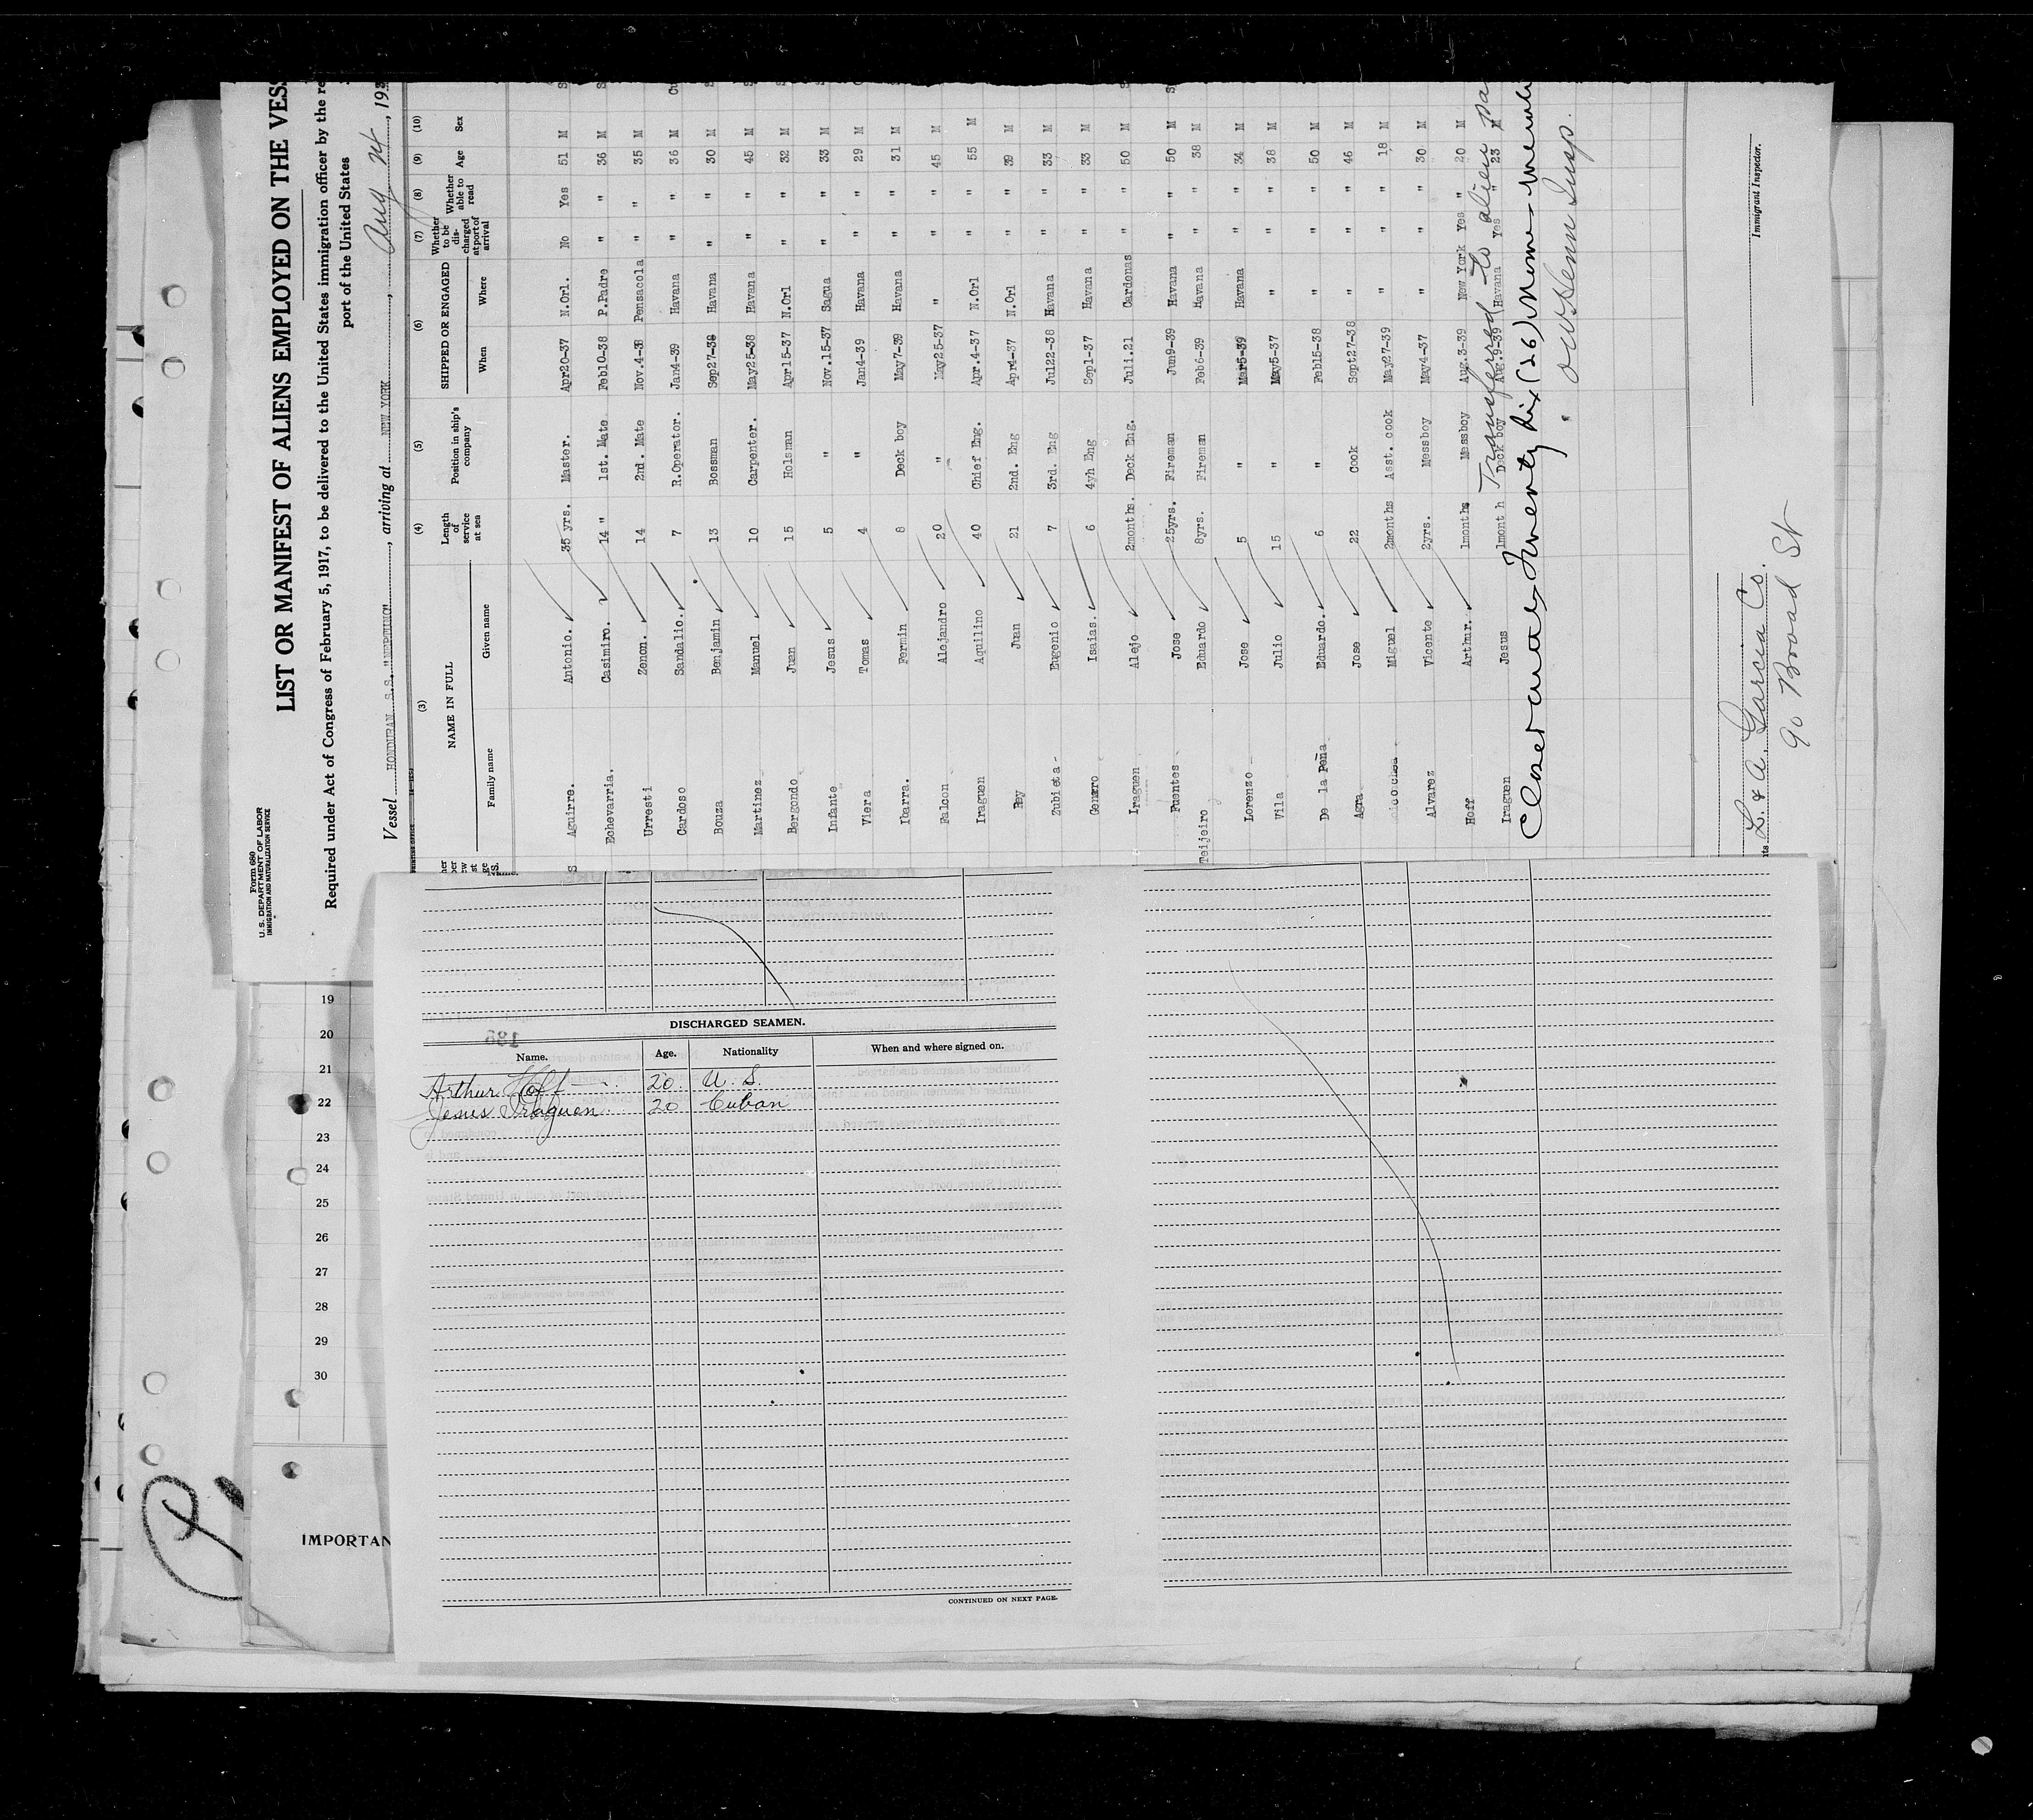 Form 680
U. S. DEPARTMENT OF LABOR
IMMIGRATION AND NATURALIZATION SERVICE
LIST OR MANIFEST OF ALIENS EMPLOYED ON THE VESS
Required under Act of Congress of February 5, 1917, to be delivered to the United States immigration officer by the re
port of the United States
Vessel HONDURAN S.S. "NEPTUNO", arriving at NEW YORK, Aug 14, 193
(3) (4) (5) (6) (7) (8) (9) (10)
NAME IN FULL Length of service at sea Position in ship's company SHIPPED OR ENGAGED Whether to be discharged at port of arrival Whether able to read Age Sex
Family name Given name When Where
Aguirre. Antonio. 35 yrs. Master. Apr20-37 N.Orl. No Yes 51 M S
Echevarria. Casimiro. 14 " 1st. Mate Feb10-38 P.Padre " " 36 M S
Urresti Zenon. 14 2nd. Mate Nov.4-38 Pensacola " " 35 M
Cardoso Sandalio. 7 R.Operator. Jan4-39 Havana " " 36 M Cu
Bouza Benjamin 13 Bossman Sep27-38 Havana " " 30 M S
Martinez Manuel 10 Carpenter. May25-38 Havana " " 45 M S
Bergondo Juan 15 Holsman Apr15-37 N.Orl " " 32 M S
Infante Jesus 5 " Nov.15-37 Sagua " " 33 M
Viera Tomas 4 " Jan4-39 Havana " " 29 M
Ibarra. Fermin 8 Deck boy May7-39 Havana " " 31 M
Falcon Alejandro 20 " May25-37 " " " 45 M
Iraguen Aquilino 40 Chief Eng. Apr.4-37 N.Orl " " 55 M
Rey Juan 21 2nd. Eng Apr4-37 N.Orl " " 39 M
Zubieta- Eugenio 7 3rd. Eng Jul22-38 Havana " " 33 M
Genaro Isaias. 6 4yh Eng Sep1-37 Havana " " 33 M
Iraguen Alejo 2months. Deck Eng. Jul1.21 Cardenas " " 50 M S
Fuentes Jose 25yrs. Fireman Jun9-39 Havana " " 50 M S
Teijeiro Eduardo 8yrs. Fireman Feb6-39 Havana " " 38 M
Lorenzo Jose 5 " Mar5-39 Havana " " 34 M
Vila Julio 15 " May5-37 " " " 38 M
De la Peña Eduardo. 6 " Feb15-38 " " " 50 M
Agra Jose 22 Cook Sept27-38 " " " 46 M
Miguel 2months Asst. cook May27-39 " " " 18 M
Alvarez Vicente 2yrs. Messboy May4-37 " " " 30 M
Hoff Arthur. 1months Messboy Aug.3-39 New York Yes " 20 M
Iraguen Jesus 1month Deck boy Aug.9-39 Havana Yes " 23 M
Transferred to alien pa
Closed out Twenty Six (26) Names
Insp.
Immigrant Inspector.
L. & A. Garcia Co.
90 Broad St
19
20
21
22
23
24
25
26
27
28
29
30
IMPORTAN
DISCHARGED SEAMEN.
Name. Age. Nationality When and where signed on.
Arthur Hoff 20 U. S.
Jesus Iraguen 20 Cuban
CONTINUED ON NEXT PAGE.